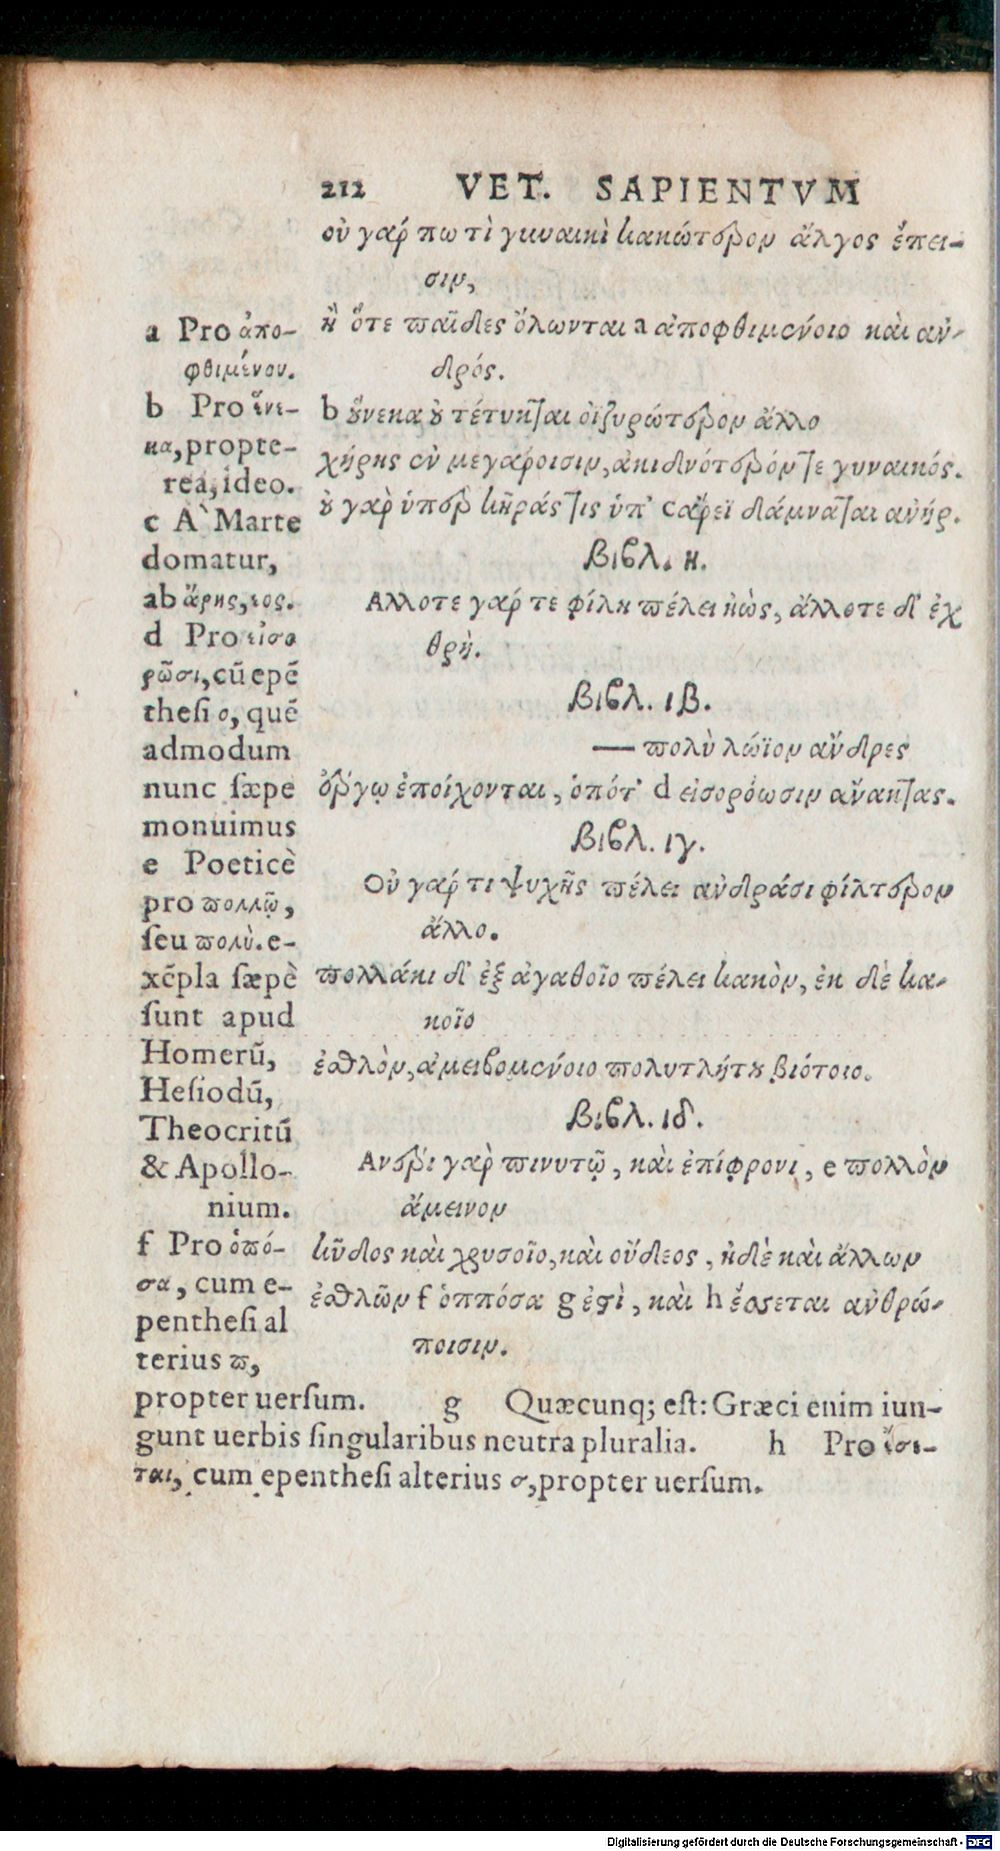 212 VET. SAPIENTVM
οὐ γάρ πω τὶ γυναικὶ κακώτερον ἄλγος ἔπει-
σιν,
ἢ ὅτε παῖδες ὄλωνται a ἀποφθιμένοιο καὶ ἀν-
δρός.
b οὕνεκα οὐ τέτυκται οἰζυρώτερον ἄλλο
χήρης ἐν μεγάροισιν, ἀκιδνότερόν τε γυναικός.
οὐ γὰρ ὑπὲρ κῆράς τις ὑπ' c ἄρεϊ δάμναται ἀνήρ.
βιβλ. η.
Αλλοτε γάρ τε φίλη πέλει ἠὼς, ἄλλοτε δ' ἐχ
θρὴ.
βιβλ. ιβ.
— πολὺ λώϊον ἄνδρες
ἔργῳ ἐποίχονται, ὁπότ' d εἰσορόωσιν ἄνακτας.
βιβλ. ιγ.
Οὐ γάρ τι ψυχῆς πέλει ἀνδράσι φίλτερον
ἄλλο.
πολλάκι δ' ἐξ ἀγαθοῖο πέλει κακὸν, ἐκ δὲ κα-
κοῖο
ἐσθλὸν, ἀμειβομένοιο πολυτλήτου βιότοιο.
βιβλ. ιδ.
Ανέρι γὰρ πινυτῷ, καὶ ἐπίφρονι, e πολλὸν
ἄμεινον
κῦδος καὶ χρυσοῖο, καὶ οὔδεος, ἠδὲ καὶ ἄλλων
ἐσθλῶν f ὁππόσα g ἐστὶ, καὶ h ἔσσεται ἀνθρώ-
ποισιν.
a Pro ἀπο-
φθιμένου.
b Pro ἕνε-
κα, propte-
rea, ideo.
c A` Marte
domatur,
ab ἄρης, εος.
d Pro εἰσο
ρῶσι, cū epē
thesi ο, quē
admodum
nunc sæpe
monuimus
e Poeticè
pro πολλῷ,
seu πολὺ. e-
xēpla sæpè
sunt apud
Homerū,
Hesiodū,
Theocritū
& Apollo-
nium.
f Pro ὁπό-
σα, cum e-
penthesi al
terius π,
propter uersum. g Quæcunq; est: Græci enim iun-
gunt uerbis singularibus neutra pluralia. h Pro ἔσε-
ται, cum epenthesi alterius σ, propter uersum.
Digitalisierung gefördert durch die Deutsche Forschungsgemeinschaft - DFG